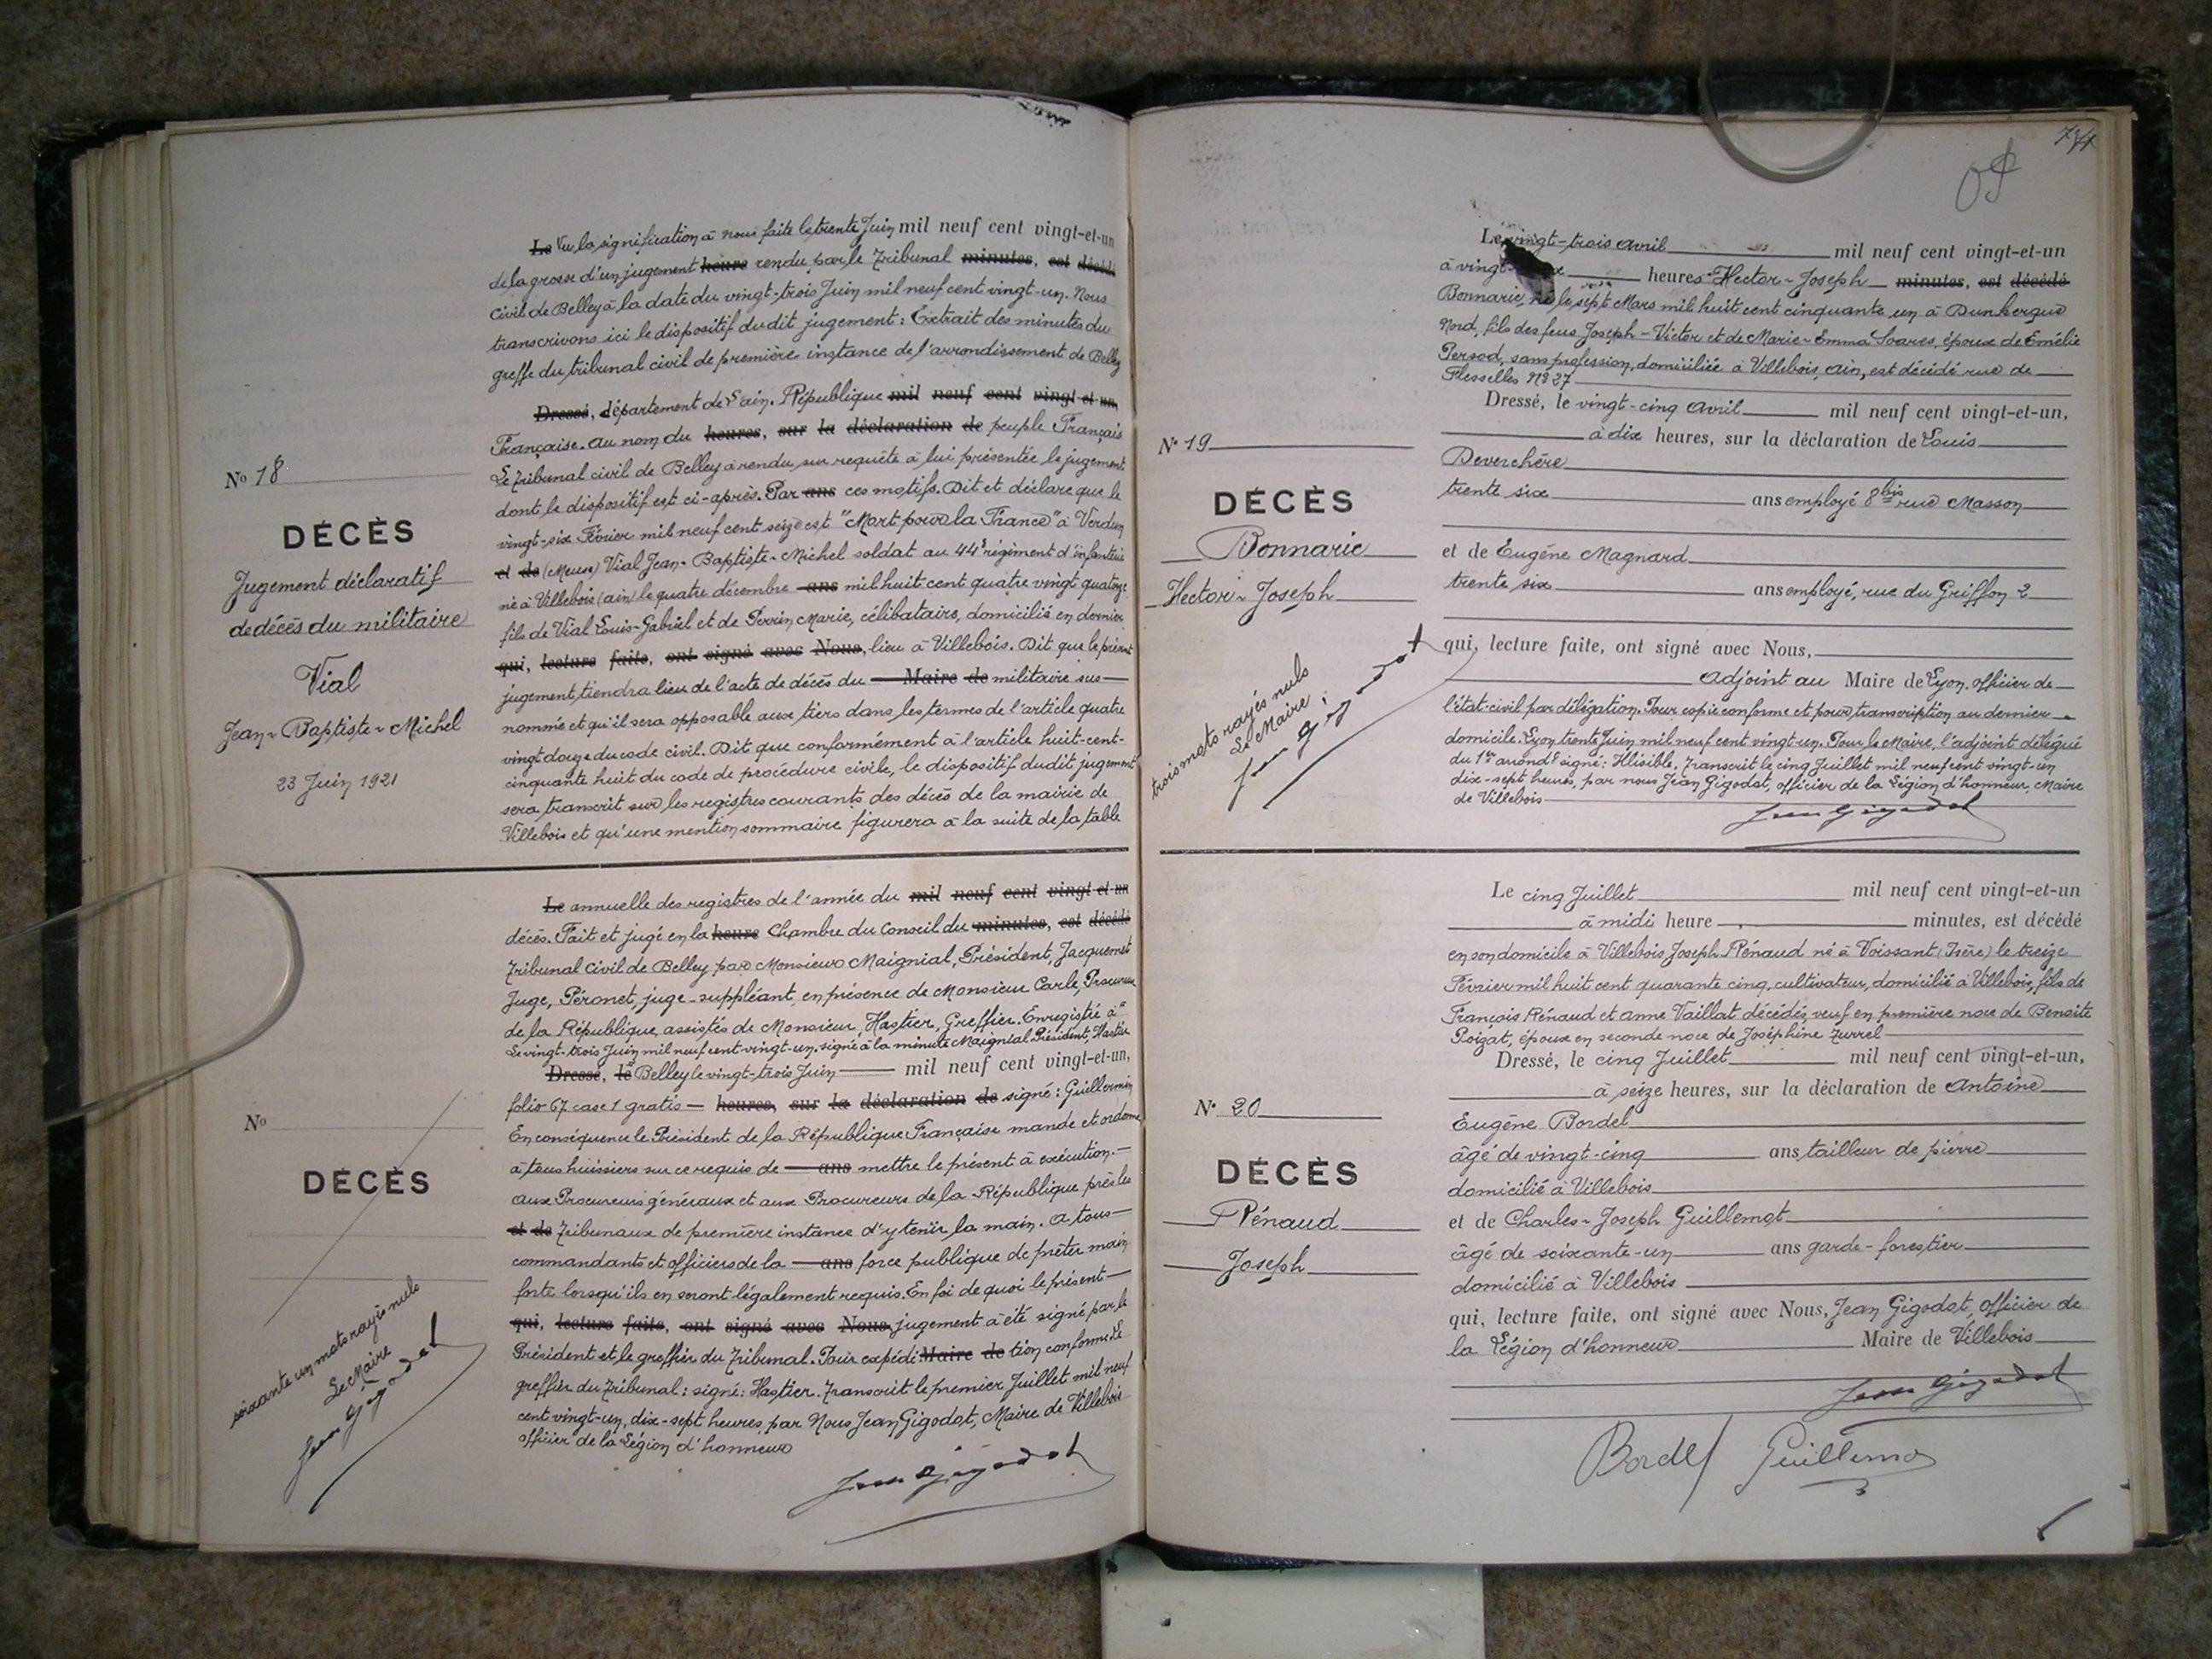 N° 18
DÉCÈS
Jugement déclaratif
de décès du militaire
Vial
Jean-Baptiste-Michel
23 Juin 1921
Le Vu la signification à nous faite le trente Juin mil neuf cent vingt-et-un
de la grosse d'un jugement heure rendu par le Tribunal minutes, est décédé
civil de Belley à la date du vingt-trois Juin mil neuf cent vingt-un. Nous
transcrivons ici le dispositif dudit jugement : Extrait des minutes du
greffe du tribunal civil de première instance de l'arrondissement de Belley
Dressé, département de l'ain. République mil neuf cent vingt-et-un,
Française. au nom du heures, sur la déclaration de peuple Français
Le Tribunal civil de Belley a rendu sur requête à lui présentée le jugement
dont le dispositif est ci-après. Par ans ces motifs. Dit et déclare que le
vingt-six Février mil neuf cent seize est "Mort pour la France" à Verdun
et de (Meuse) Vial Jean-Baptiste-Michel soldat au 44e régiment d'infanterie
né à Villebois (ain) le quatre décembre ans mil huit cent quatre vingt quatorze
fils de Vial Louis-Gabriel et de Perrin Marie, célibataire, domicilié en dernier
qui, lecture faite, ont signé avec Nous, lieu à Villebois. Dit que le présent
jugement tiendra lieu de l'acte de décès du Maire de militaire sus-
nommé et qu'il sera opposable aux tiers dans les termes de l'article quatre
vingt douze du code civil. Dit que conformément à l'article huit-cent-
cinquante huit du code de procédure civile, le dispositif dudit jugement
sera transcrit sur les registres courants des décès de la mairie de
Villebois et qu'une mention sommaire figurera à la suite de la table
N°
DÉCÈS
soixante un mots rayés nuls
Le Maire
Jean Gigodot
Le annuelle des registres de l'année du mil neuf cent vingt-et-un
décès. Fait et jugé en la heure Chambre du Conseil du minutes, est décédé
Tribunal Civil de Belley par Monsieur Maignial, Président, Jacquemet
Juge, Péronet, juge-suppléant, en présence de Monsieur Carle, Procureur
de la République, assistés de Monsieur Hastier, Greffier. Enregistré à
Le vingt-trois Juin mil neuf cent-vingt-un. signé à la minute Maignial Président, Hastier
Dressé, le Belley le vingt-trois Juin mil neuf cent vingt-et-un,
folio 67 case 1 gratis heures, sur la déclaration de signé : Guillermin
En conséquence le Président de la République Française mande et ordonne
à tous huissiers sur ce requis de ans mettre le présent à exécution.
aux Procureurs généraux et aux Procureurs de la République près les
et de Tribunaux de première instance d'y tenir la main. a tous
commandants et officiers de la ans force publique de prêter main
forte lorsqu'ils en seront légalement requis. En foi de quoi le présent
qui, lecture faite, ont signé avec Nous jugement a été signé par le
Président et le greffier du Tribunal. Pour expédi Maire de tion conforme. Le
greffier du Tribunal : signé : Hastier. Transcrit le premier Juillet mil neuf
cent vingt-un, dix-sept heures, par Nous Jean Gigodot, Maire de Villebois
officier de la Légion d'honneur
Jean Gigodot
N° 19
DÉCÈS
Bonnaric
Hector-Joseph
trois mots rayés nuls
Le Maire ;
Jean Gigodot
Le vingt-trois avril mil neuf cent vingt-et-un
à vingt- heures Hector-Joseph minutes, est décédé
Bonnaric, né le sept Mars mil huit cent cinquante un à Dunkerque
Nord, fils des feus Joseph-Victor et de Marie-Emma Soares, époux de Emélie
Persod, sans profession, domiciliée à Villebois, ain, est décédé rue de
Flesselles N° 27
Dressé, le vingt-cinq avril mil neuf cent vingt-et-un,
à dix heures, sur la déclaration de Louis
Deverchère
trente six ans employé 8 bis rue Masson
et de Eugène Magnard
trente six ans employé, rue du Griffon 2
qui, lecture faite, ont signé avec Nous,
adjoint au Maire de Lyon. officier de
l'état-civil par délégation. Pour copie conforme et pour transcription au dernier
domicile. Lyon trente Juin mil neuf cent vingt-un. Pour le Maire, l'adjoint délégué
du 1er arrondt signé : Illisible. Transcrit le cinq Juillet mil neuf cent vingt-un
dix-sept heures, par nous Jean Gigodot, officier de la Légion d'honneur, Maire
de Villebois
Jean Gigodot
N° 20
DÉCÈS
Rénaud
Joseph
Le cinq Juillet mil neuf cent vingt-et-un
à midi heure minutes, est décédé
en son domicile à Villebois Joseph Rénaud né à Voissant (Isère) le treize
Février mil huit cent quarante cinq, cultivateur, domicilié à Villebois, fils de
François Rénaud et anne Vaillat décédés, veuf en première noce de Benoite
Poizat, époux en seconde noce de Joséphine Zurrel
Dressé, le cinq Juillet mil neuf cent vingt-et-un,
à seize heures, sur la déclaration de antoine
Eugène Bordel
âgé de vingt-cinq ans tailleur de pierre
domicilié à Villebois
et de Charles-Joseph Guillemot
âgé de soixante-un ans garde-forestier
domicilié à Villebois
qui, lecture faite, ont signé avec Nous, Jean Gigodot, officier de
la Légion d'honneur Maire de Villebois
Jean Gigodot
Bordel Guillemot